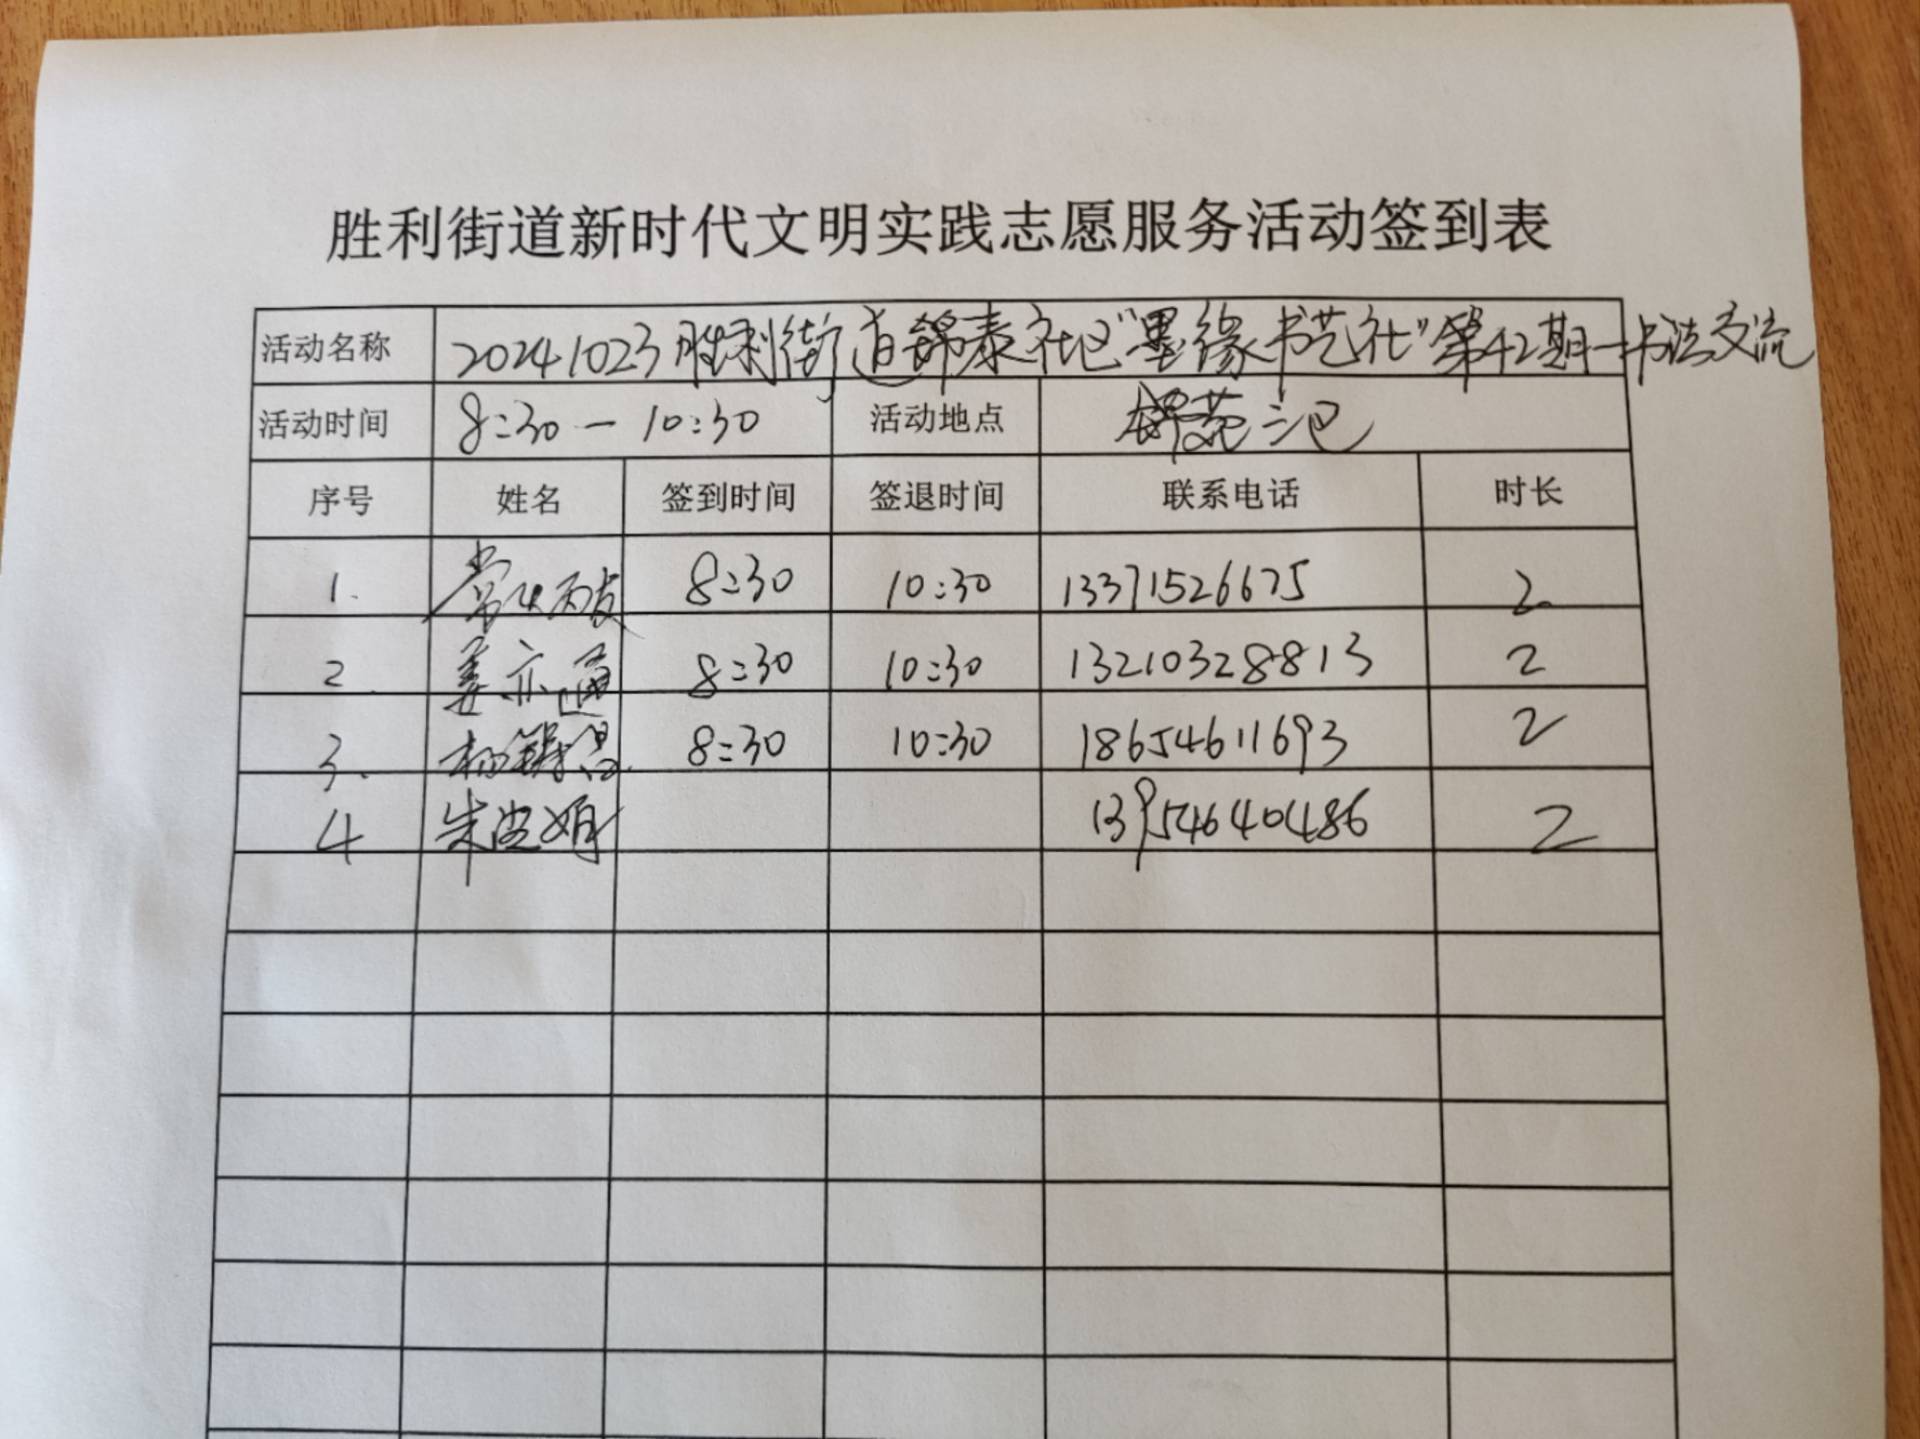 胜利街道新时代文明实践志愿服务活动签到表
活动名称 20241023胜利街道锦泰社区“墨缘书艺社”第42期—书法交流
活动时间 8:30—10:30 活动地点 锦苑三区
序号 姓名 签到时间 签退时间 联系电话 时长
1. 8:30 10:30 13371526675 2
2. 姜亦通 8:30 10:30 13210328813 2
3. 8:30 10:30 18654611693 2
4 13954640486 2